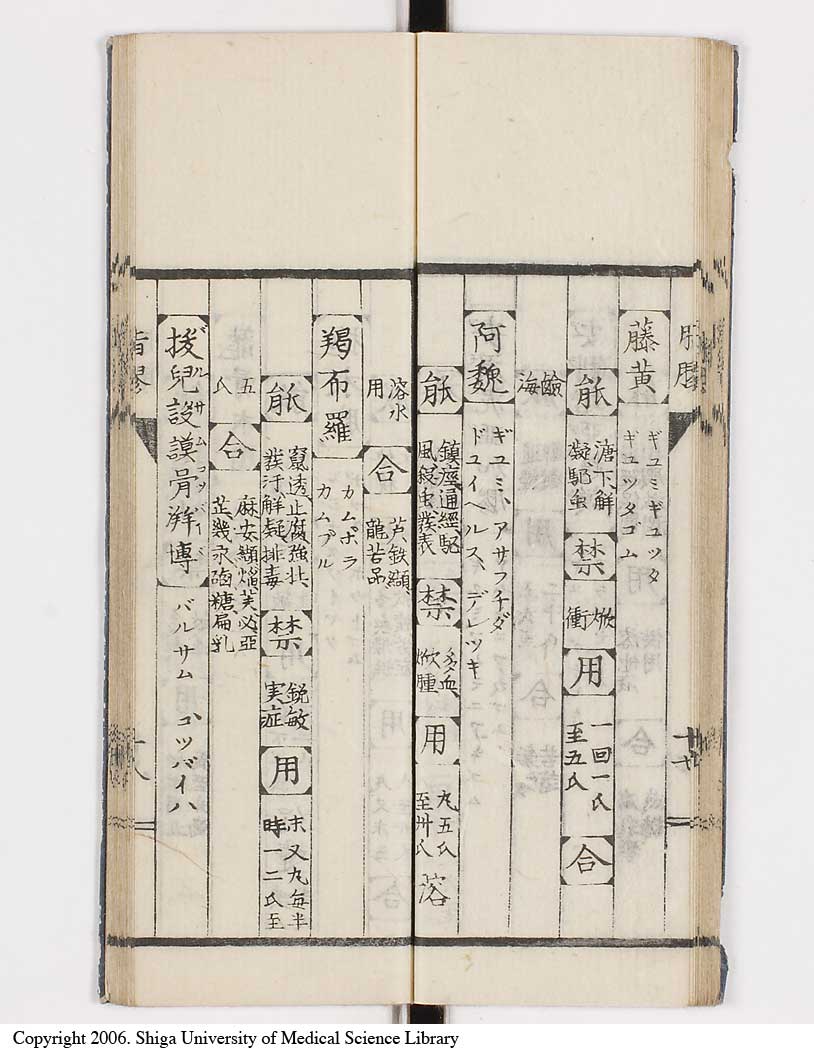 藤黄 ギユミギユツタ
ギユツタゴム
能 溏下解
凝駆虫 禁 焮
衝 用 一回一氏
至五氏 合
鹼
海
阿魏 ギユミ、アサフチダ
ドユイヘルス、デレツキ
能 鎮痙通經駆
風殺虫発表 禁 多血
焮腫 用 丸五氏
至卅氏 溶
溶水
用 合 芦鉄纈
龍苦品
羯布羅 カムポラ
カムプル
能 竄透止腐強壮
発汗解凝排毒 禁 鋭敏
実症 用 末又丸毎半
時一二氏至
五
氏 合 麻安纈焔芙必亜
芷幾永硇糖扁乳
抜兒設謨骨湃博 バルサムコツバイバ
バルサム コツバイハ
十八
Copyright 2006. Shiga University of Medical Science Library